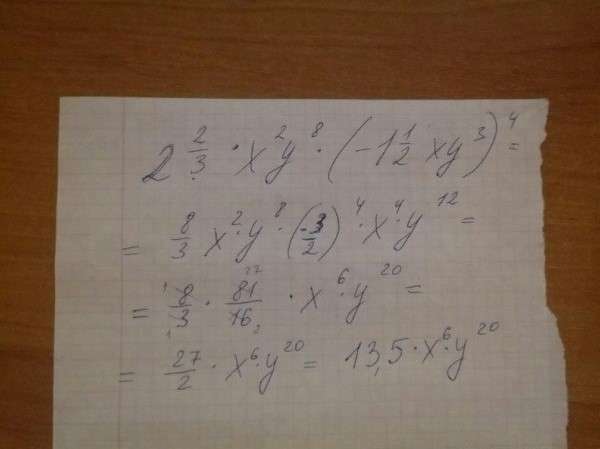 2 2/3 · x²y⁸ · (-1 1/2 xy³)⁴ =
= 8/3 x²·y⁸ · (-3/2)⁴ · x⁴·y¹² =
= 8/3 · 81/16 · x⁶·y²⁰ =
= 27/2 · x⁶·y²⁰ = 13,5·x⁶·y²⁰